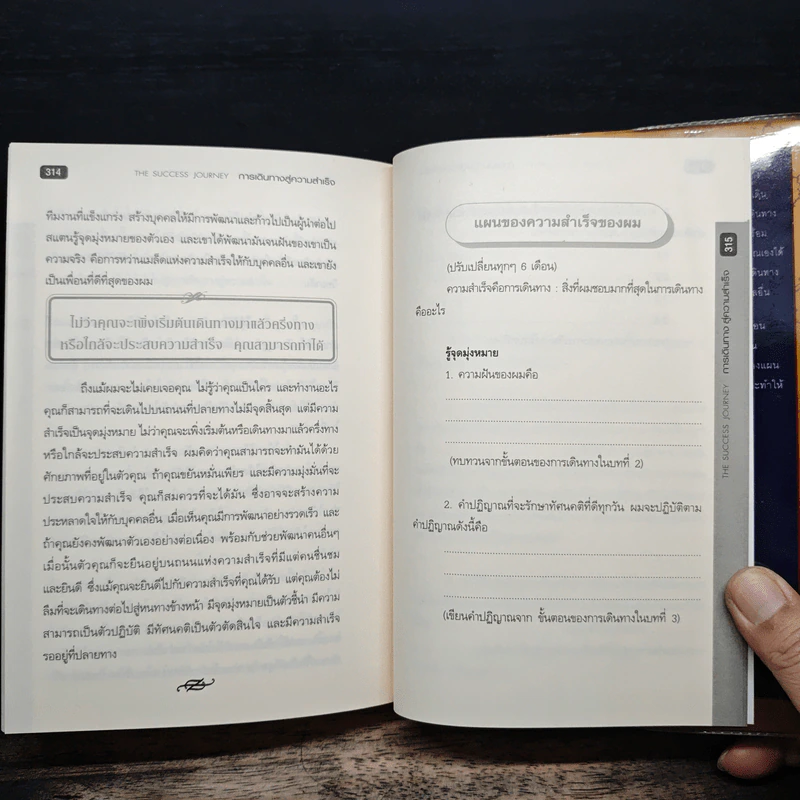 314
THE SUCCESS JOURNEY การเดินทางสู่ความสำเร็จ
ทีมงานที่แข็งแกร่ง สร้างบุคคลให้มีการพัฒนาและก้าวไปเป็นผู้นำต่อไป
สแตนรู้จุดมุ่งหมายของตัวเอง และเขาได้พัฒนามันจนฝันของเขาเป็น
ความจริง คือการหว่านเมล็ดแห่งความสำเร็จให้กับบุคคลอื่น และเขายัง
เป็นเพื่อนที่ดีที่สุดของผม
ไม่ว่าคุณจะเพิ่งเริ่มต้นเดินทางมาแล้วครึ่งทาง
หรือใกล้จะประสบความสำเร็จ คุณสามารถทำได้
ถึงแม้ผมจะไม่เคยเจอคุณ ไม่รู้ว่าคุณเป็นใคร และทำงานอะไร
คุณก็สามารถที่จะเดินไปบนถนนที่ปลายทางไม่มีจุดสิ้นสุด แต่มีความ
สำเร็จเป็นจุดมุ่งหมาย ไม่ว่าคุณจะเพิ่งเริ่มต้นหรือเดินทางมาแล้วครึ่งทาง
หรือใกล้จะประสบความสำเร็จ ผมคิดว่าคุณสามารถจะทำมันได้ด้วย
ศักยภาพที่อยู่ในตัวคุณ ถ้าคุณขยันหมั่นเพียร และมีความมุ่งมั่นที่จะ
ประสบความสำเร็จ คุณก็สมควรที่จะได้มัน ซึ่งอาจจะสร้างความ
ประหลาดใจให้กับบุคคลอื่น เมื่อเห็นคุณมีการพัฒนาอย่างรวดเร็ว และ
ถ้าคุณยังคงพัฒนาตัวเองอย่างต่อเนื่อง พร้อมกับช่วยพัฒนาคนอื่นๆ
เมื่อนั้นตัวคุณก็จะยืนอยู่บนถนนแห่งความสำเร็จที่มีแต่คนชื่นชม
และยินดี ซึ่งแม้คุณจะยินดีไปกับความสำเร็จที่คุณได้รับ แต่คุณต้องไม่
ลืมที่จะเดินทางต่อไปสู่หนทางข้างหน้า มีจุดมุ่งหมายเป็นตัวชี้นำ มีความ
สามารถเป็นตัวปฏิบัติ มีทัศนคติเป็นตัวตัดสินใจ และมีความสำเร็จ
รออยู่ที่ปลายทาง
แผนของความสำเร็จของผม
(ปรับเปลี่ยนทุกๆ 6 เดือน)
ความสำเร็จคือการเดินทาง : สิ่งที่ผมชอบมากที่สุดในการเดินทาง
คืออะไร
รู้จุดมุ่งหมาย
1. ความฝันของผมคือ
(ทบทวนจากขั้นตอนของการเดินทางในบทที่ 2)
2. คำปฏิญาณที่จะรักษาทัศนคติที่ดีทุกวัน ผมจะปฏิบัติตาม
คำปฏิญาณดังนี้คือ
(เขียนคำปฏิญาณจาก ขั้นตอนของการเดินทางในบทที่ 3)
THE SUCCESS JOURNEY การเดินทาง สู่ความสำเร็จ
315